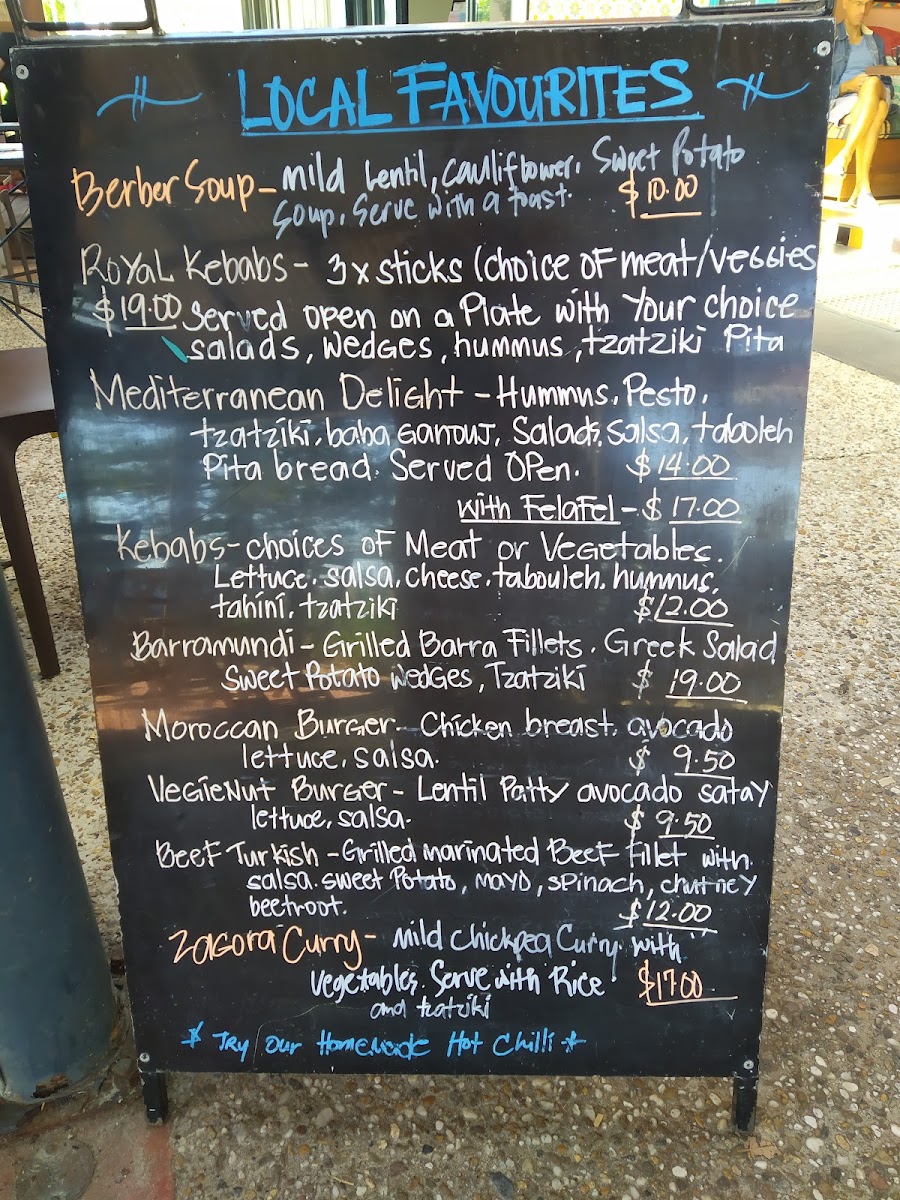 LOCAL FAVOURITES
Berber Soup - mild lentil, cauliflower, Sweet Potato
Soup. Serve with a toast. $10.00
Royal Kebabs - 3 x sticks (choice of meat/veggies
$19.00 Served open on a Plate with Your choice
salads, wedges, hummus, tzatziki Pita
Mediterranean Delight - Hummus, Pesto,
tzatziki, baba ganouj, Salads, Salsa, tabouleh
Pita bread. Served Open. $14.00
with Felafel - $17.00
Kebabs - choices of Meat or Vegetables.
Lettuce, salsa, cheese, tabouleh, hummus,
tahini, tzatziki $12.00
Barramundi - Grilled Barra Fillets. Greek Salad
Sweet Potato wedges, Tzatziki $19.00
Moroccan Burger - Chicken breast, avocado
lettuce, salsa. $9.50
VegieNut Burger - Lentil Patty avocado satay
lettuce, salsa. $9.50
Beef Turkish - Grilled marinated Beef fillet with
salsa, sweet Potato, mayo, spinach, chutney
beetroot. $12.00
Zagora Curry - Mild Chickpea Curry with
vegetables. Serve with Rice $17.00
and tzatziki
Try Our Homemade Hot Chilli